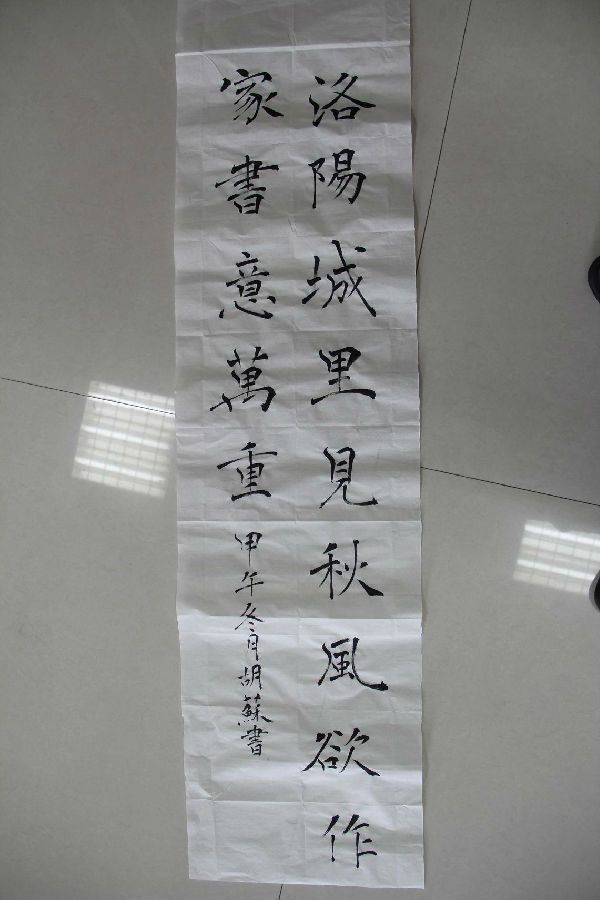 洛陽城里見秋風欲作
家書意萬重
甲午冬月胡蘇書